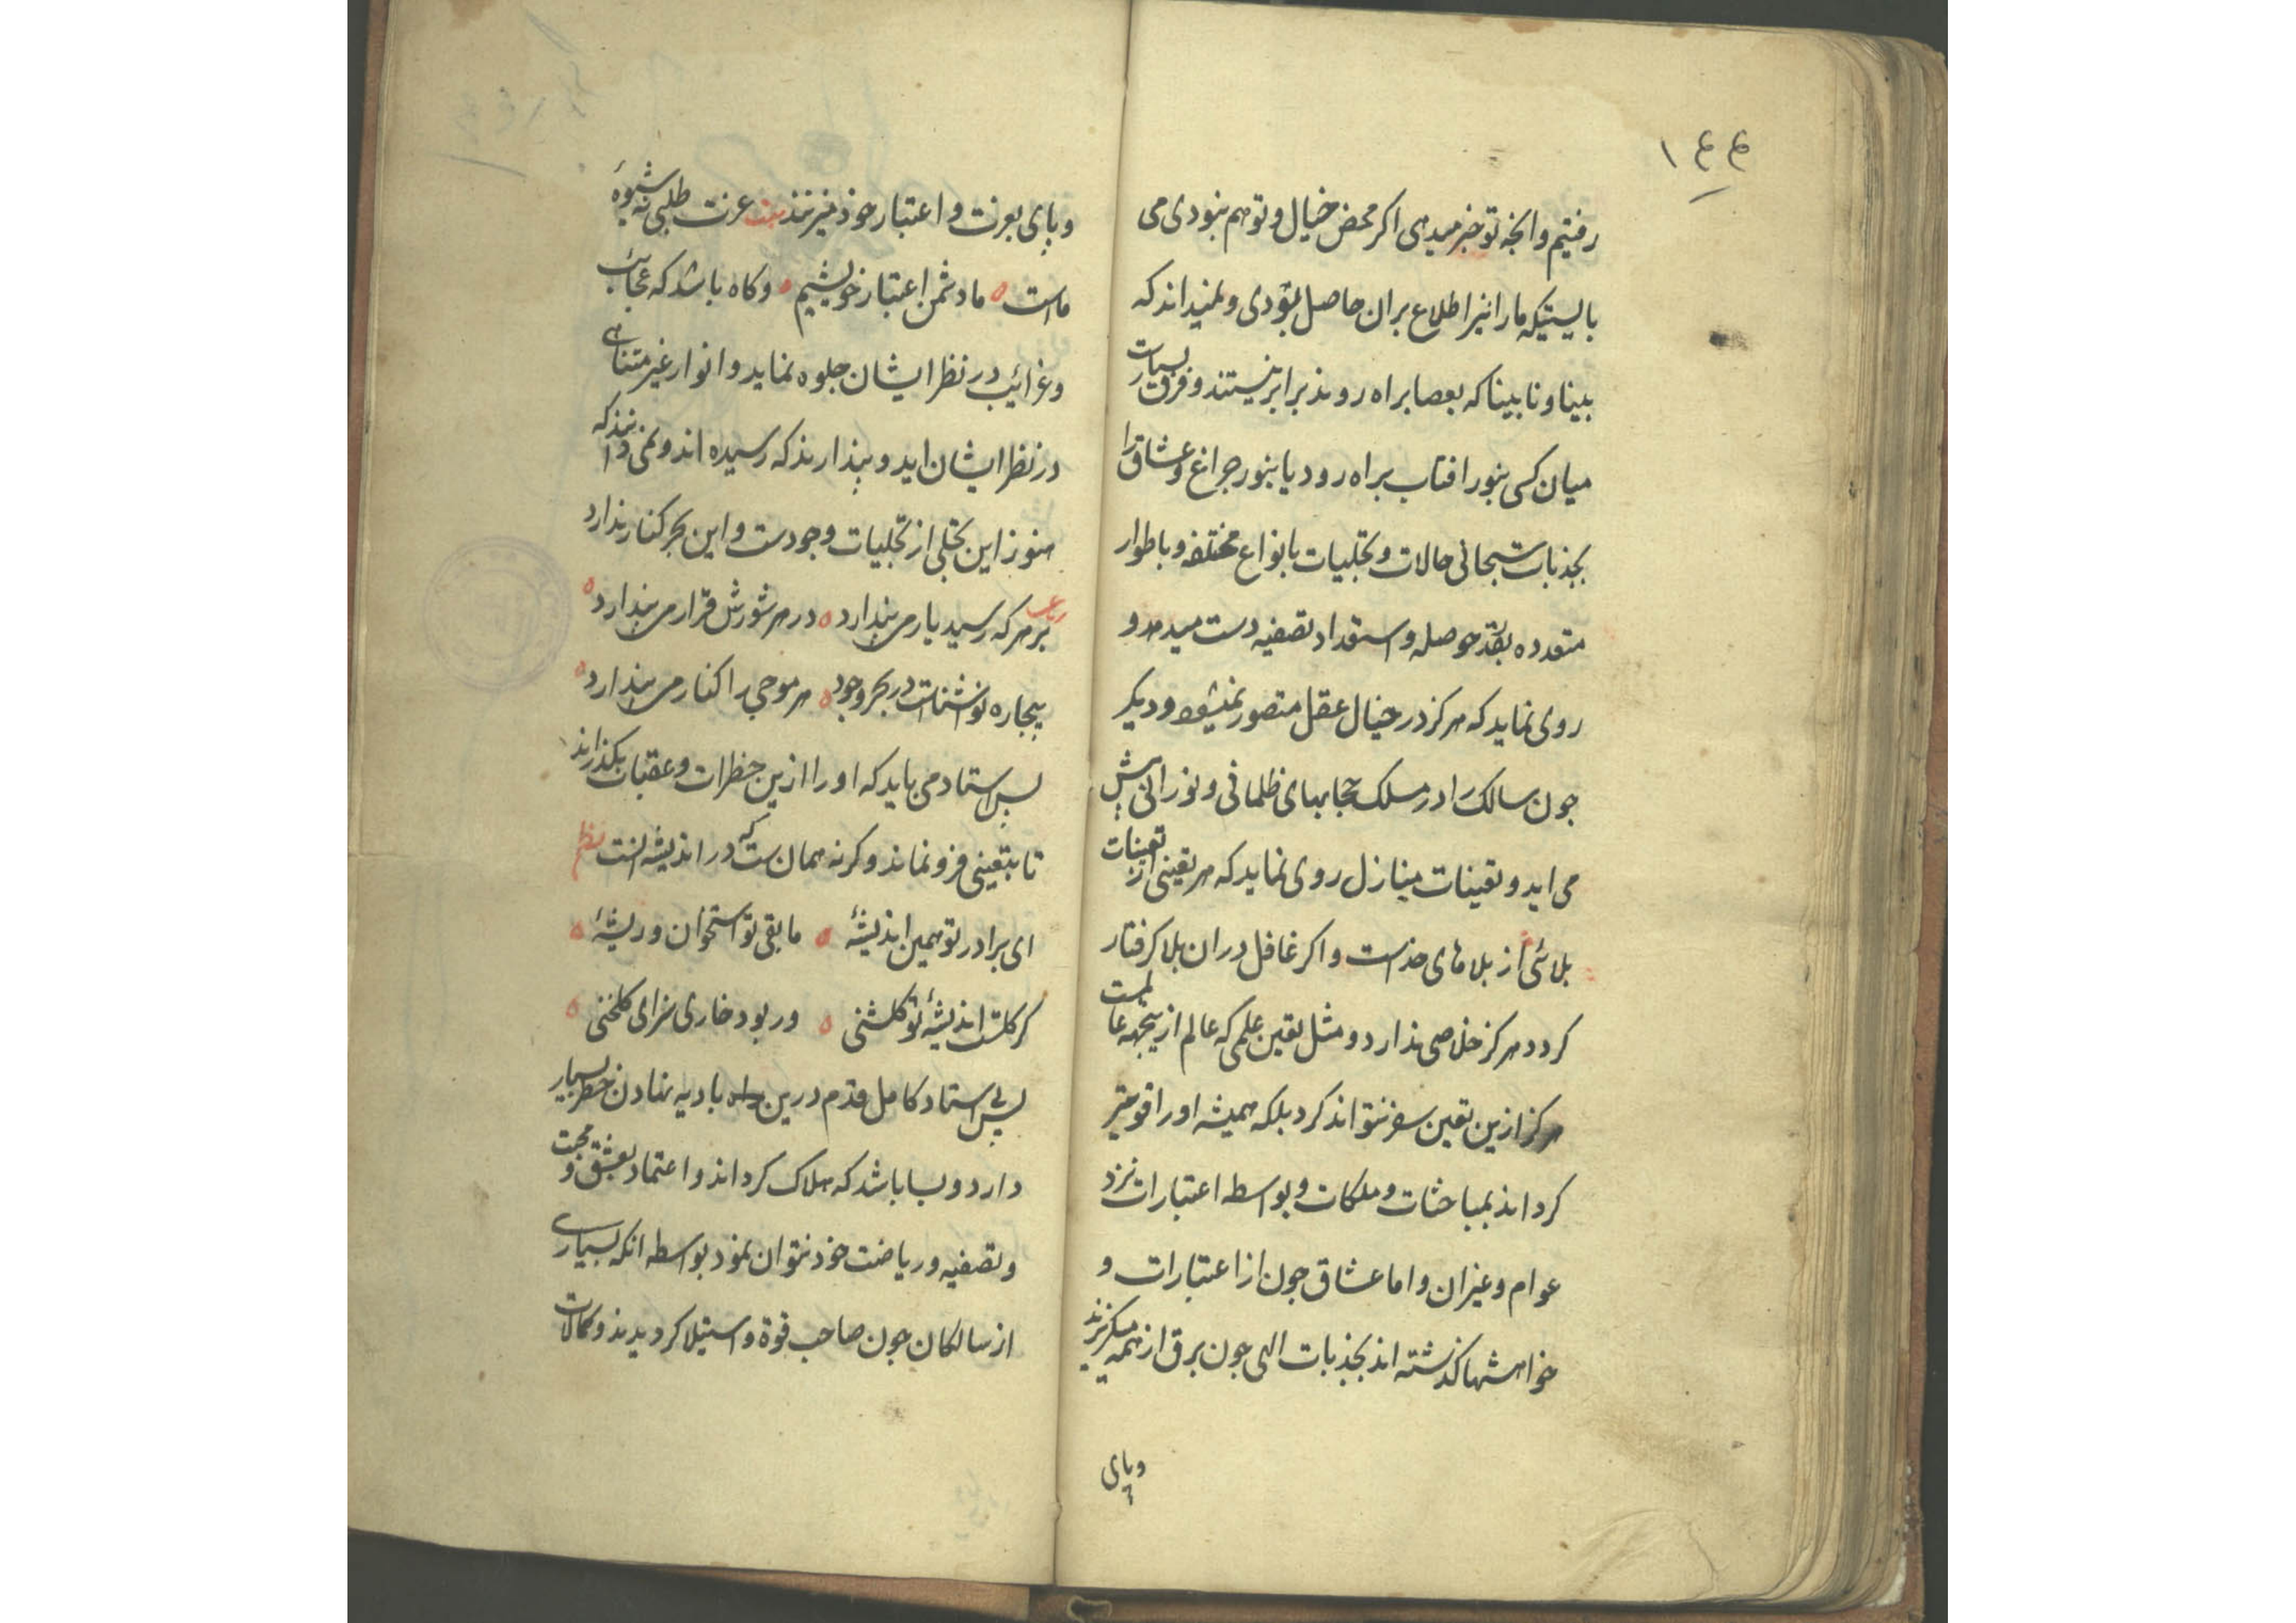 ۱۴۴
رفتیم وانچه تو خبر میدهی اکر محض خیال و توهم نبودی می
بایستیکه ما را نیز اطلاع بران حاصل بودی و نمیداند که
بینا و نابینا که بعصا براه روند برابر نیستند و فرق بسیارست
میان کسی بنور افتاب براه رود یا بنور چراغ و عشاق را
بجذبات سبحانی حالات و تجلیات بانواع مختلفه و باطوار
متعدده بقدر حوصله و استعداد تصفیه دست میدهد و
روی نماید که هرکز در خیال عقل متصور نمیشود و دیکر
چون سالک را در مسلک حجابهای ظلمانی و نورانی پیش
می اید و تعینات منازل روی نماید که هر تعینی از تعینات
بلائی از بلاهای خداست و اکر غافل دران بلا کرفتار
کردد هرکز خلاصی ندارد و مثل تعین علمی که عالم ازینجهه عالمست
هرکز ازین تعین سفر نتواند کرد بلکه همیشه او را قوی تر
کرداند بمباحثات و ملکات و بواسطه اعتبارات نزد
عوام و غیران و اما عشاق چون از اعتبارات و
خواهشها کذشته اند بجذبات الهی چون برق از همه میکزرند
و پای
و پای بعزت و اعتبار خود میزنند بیت عزت طلبی نه شیوهٔ
ماست ما دشمن اعتبار خویشیم و کاه باشد که عجائب
و غرائب در نظر ایشان جلوه نماید و انوار غیر متناهی
در نظر ایشان اید و پندارند که رسیده اند و نمی دانند که
هنوز این تجلی از تجلیات وجودست و این بحر کنار ندارد
رباعی
بر هر که رسید یار می پندارد در هر شورش قرار می پندارد
بیچاره نواشناست در بحر وجود هر موجی را کنار می پندارد
پس استاد می باید که او را ازین خطرات و عقبات بکذراند
تا بتعینی فرو نماند و کرنه همان ست که در اندیشه انست نظم
ای برادر تو همین اندیشهٔ ما بقی تو استخوان و ریشهٔ
کر کلست اندیشهٔ تو کلشنی ور بود خاری سزای کلخنی
پس بی استاد کامل قدم درین بادیه نهادن خطر بسیار
دارد و بسا باشد که هلاک کرداند و اعتماد بعشق و محبت
و تصفیه و ریاضت خود نتوان نمود بواسطه انکه بسیاری
از سالکان چون صاحب قوة و استیلا کردیدند و کمالات